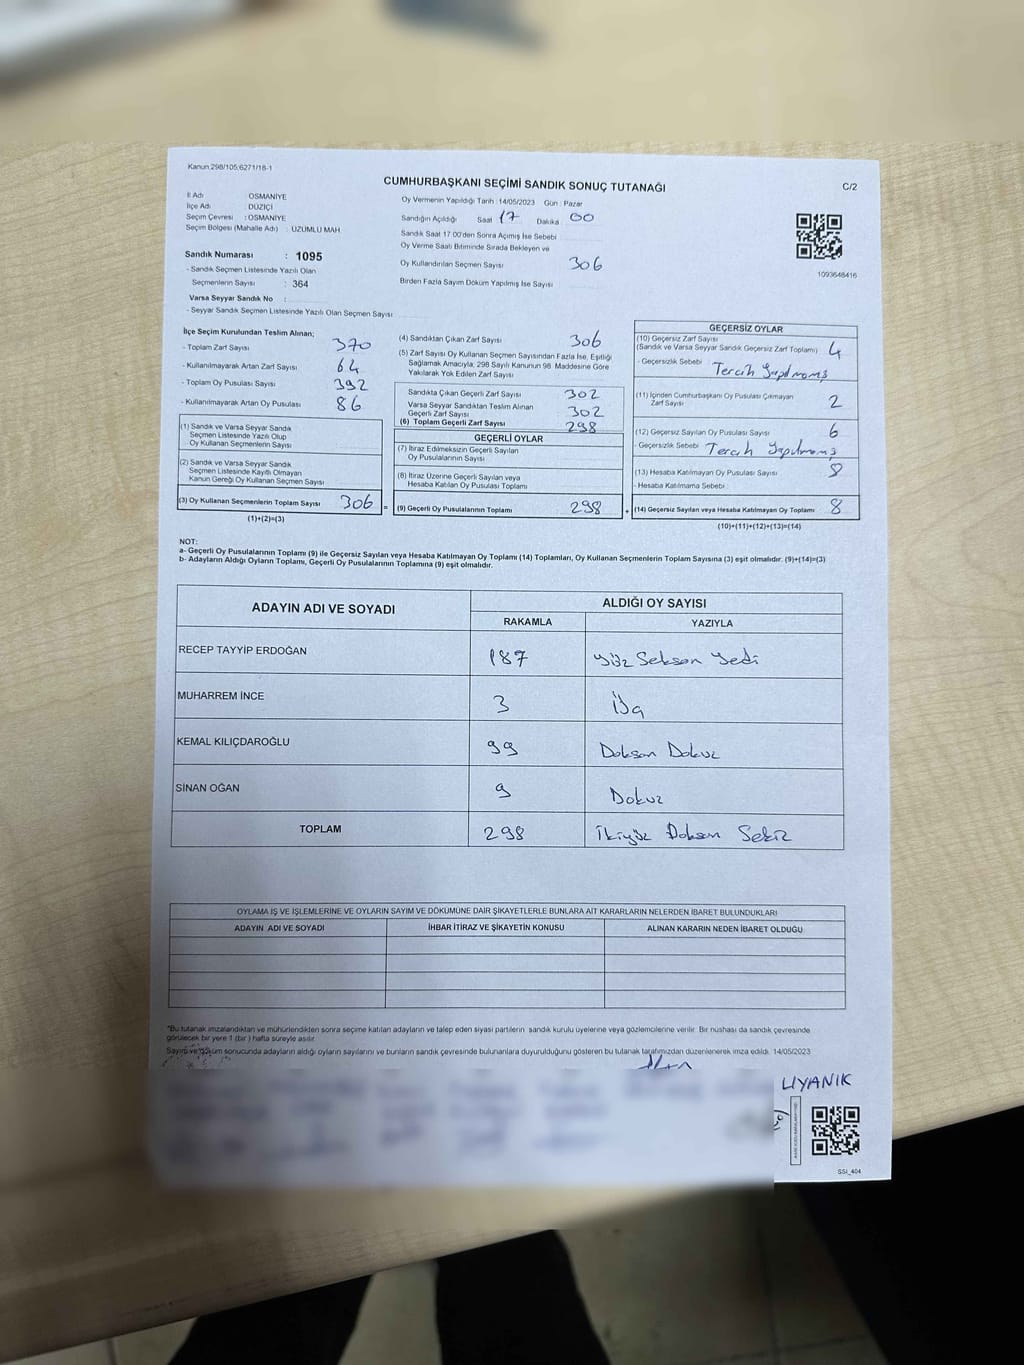 Kanun:298/105;6271/18-1
CUMHURBAŞKANI SEÇİMİ SANDIK SONUÇ TUTANAĞI
C/2
İl Adı : OSMANİYE
İlçe Adı : DÜZİÇİ
Seçim Çevresi : OSMANİYE
Seçim Bölgesi (Mahalle Adı) : ÜZÜMLÜ MAH.
Sandık Numarası : 1095
- Sandık Seçmen Listesinde Yazılı Olan
Seçmenlerin Sayısı : 364
Varsa Seyyar Sandık No :
- Seyyar Sandık Seçmen Listesinde Yazılı Olan Seçmen Sayısı
Oy Vermenin Yapıldığı Tarih : 14/05/2023 Gün : Pazar
Sandığın Açıldığı Saat 17 Dakika 00
Sandık Saat 17.00'den Sonra Açımış İse Sebebi
Oy Verme Saati Bitiminde Sırada Bekleyen ve
Oy Kullandırılan Seçmen Sayısı 306
Birden Fazla Sayım Döküm Yapılmış İse Sayısı
1093648416
İlçe Seçim Kurulundan Teslim Alınan;
- Toplam Zarf Sayısı 370
- Kullanılmayarak Artan Zarf Sayısı 64
- Toplam Oy Pusulası Sayısı 392
- Kullanılmayarak Artan Oy Pusulası 86
(1) Sandık ve Varsa Seyyar Sandık
Seçmen Listesinde Yazılı Olup
Oy Kullanan Seçmenlerin Sayısı
(2) Sandık ve Varsa Seyyar Sandık
Seçmen Listesinde Kayıtlı Olmayan
Kanun Gereği Oy Kullanan Seçmen Sayısı
(3) Oy Kullanan Seçmenlerin Toplam Sayısı 306
(1)+(2)=(3)
(4) Sandıktan Çıkan Zarf Sayısı 306
(5) Zarf Sayısı Oy Kullanan Seçmen Sayısından Fazla İse, Eşitliği
Sağlamak Amacıyla; 298 Sayılı Kanunun 98. Maddesine Göre
Yakılarak Yok Edilen Zarf Sayısı
Sandıkta Çıkan Geçerli Zarf Sayısı 302
Varsa Seyyar Sandıktan Teslim Alınan
Geçerli Zarf Sayısı 302
(6) Toplam Geçerli Zarf Sayısı 298
GEÇERLİ OYLAR
(7) İtiraz Edilmeksizin Geçerli Sayılan
Oy Pusulalarının Sayısı
(8) İtiraz Üzerine Geçerli Sayılan veya
Hesaba Katılan Oy Pusulası Toplamı
= (9) Geçerli Oy Pusulalarının Toplamı 298
GEÇERSİZ OYLAR
(10) Geçersiz Zarf Sayısı
(Sandık ve Varsa Seyyar Sandık Geçersiz Zarf Toplamı) 4
- Geçersizlik Sebebi Tercih Yapılmamış
(11) İçinden Cumhurbaşkanı Oy Pusulası Çıkmayan
Zarf Sayısı 2
(12) Geçersiz Sayılan Oy Pusulası Sayısı 6
- Geçersizlik Sebebi Tercih Yapılmamış
(13) Hesaba Katılmayan Oy Pusulası Sayısı 8
- Hesaba Katılmama Sebebi
+ (14) Geçersiz Sayılan veya Hesaba Katılmayan Oy Toplamı 8
(10)+(11)+(12)+(13)=(14)
NOT:
a- Geçerli Oy Pusulalarının Toplamı (9) ile Geçersiz Sayılan veya Hesaba Katılmayan Oy Toplamı (14) Toplamları, Oy Kullanan Seçmenlerin Toplam Sayısına (3) eşit olmalıdır. (9)+(14)=(3)
b- Adayların Aldığı Oyların Toplamı, Geçerli Oy Pusulalarının Toplamına (9) eşit olmalıdır.
ADAYIN ADI VE SOYADI
ALDIĞI OY SAYISI
RAKAMLA YAZIYLA
RECEP TAYYİP ERDOĞAN 187 Yüz Seksen Yedi
MUHARREM İNCE 3 Üç
KEMAL KILIÇDAROĞLU 99 Doksan Dokuz
SİNAN OĞAN 9 Dokuz
TOPLAM 298 İkiyüz Doksan Sekiz
OYLAMA İŞ VE İŞLEMLERİNE VE OYLARIN SAYIM VE DÖKÜMÜNE DAİR ŞİKAYETLERLE BUNLARA AİT KARARLARIN NELERDEN İBARET BULUNDUKLARI
ADAYIN ADI VE SOYADI İHBAR İTİRAZ VE ŞİKAYETİN KONUSU ALINAN KARARIN NEDEN İBARET OLDUĞU
*Bu tutanak imzalandıktan ve mühürlendikten sonra seçime katılan adayların ve talep eden siyasi partilerin sandık kurulu üyelerine veya gözlemcilerine verilir. Bir nüshası da sandık çevresinde
görülecek bir yere 1 (bir) hafta süreyle asılır.
Sayım ve döküm sonucunda adayların aldığı oyların sayılarını ve bunların sandık çevresinde bulunanlara duyurulduğunu gösteren bu tutanak tarafımızdan düzenlenerek imza edildi. 14/05/2023
UYANIK
SSI_404